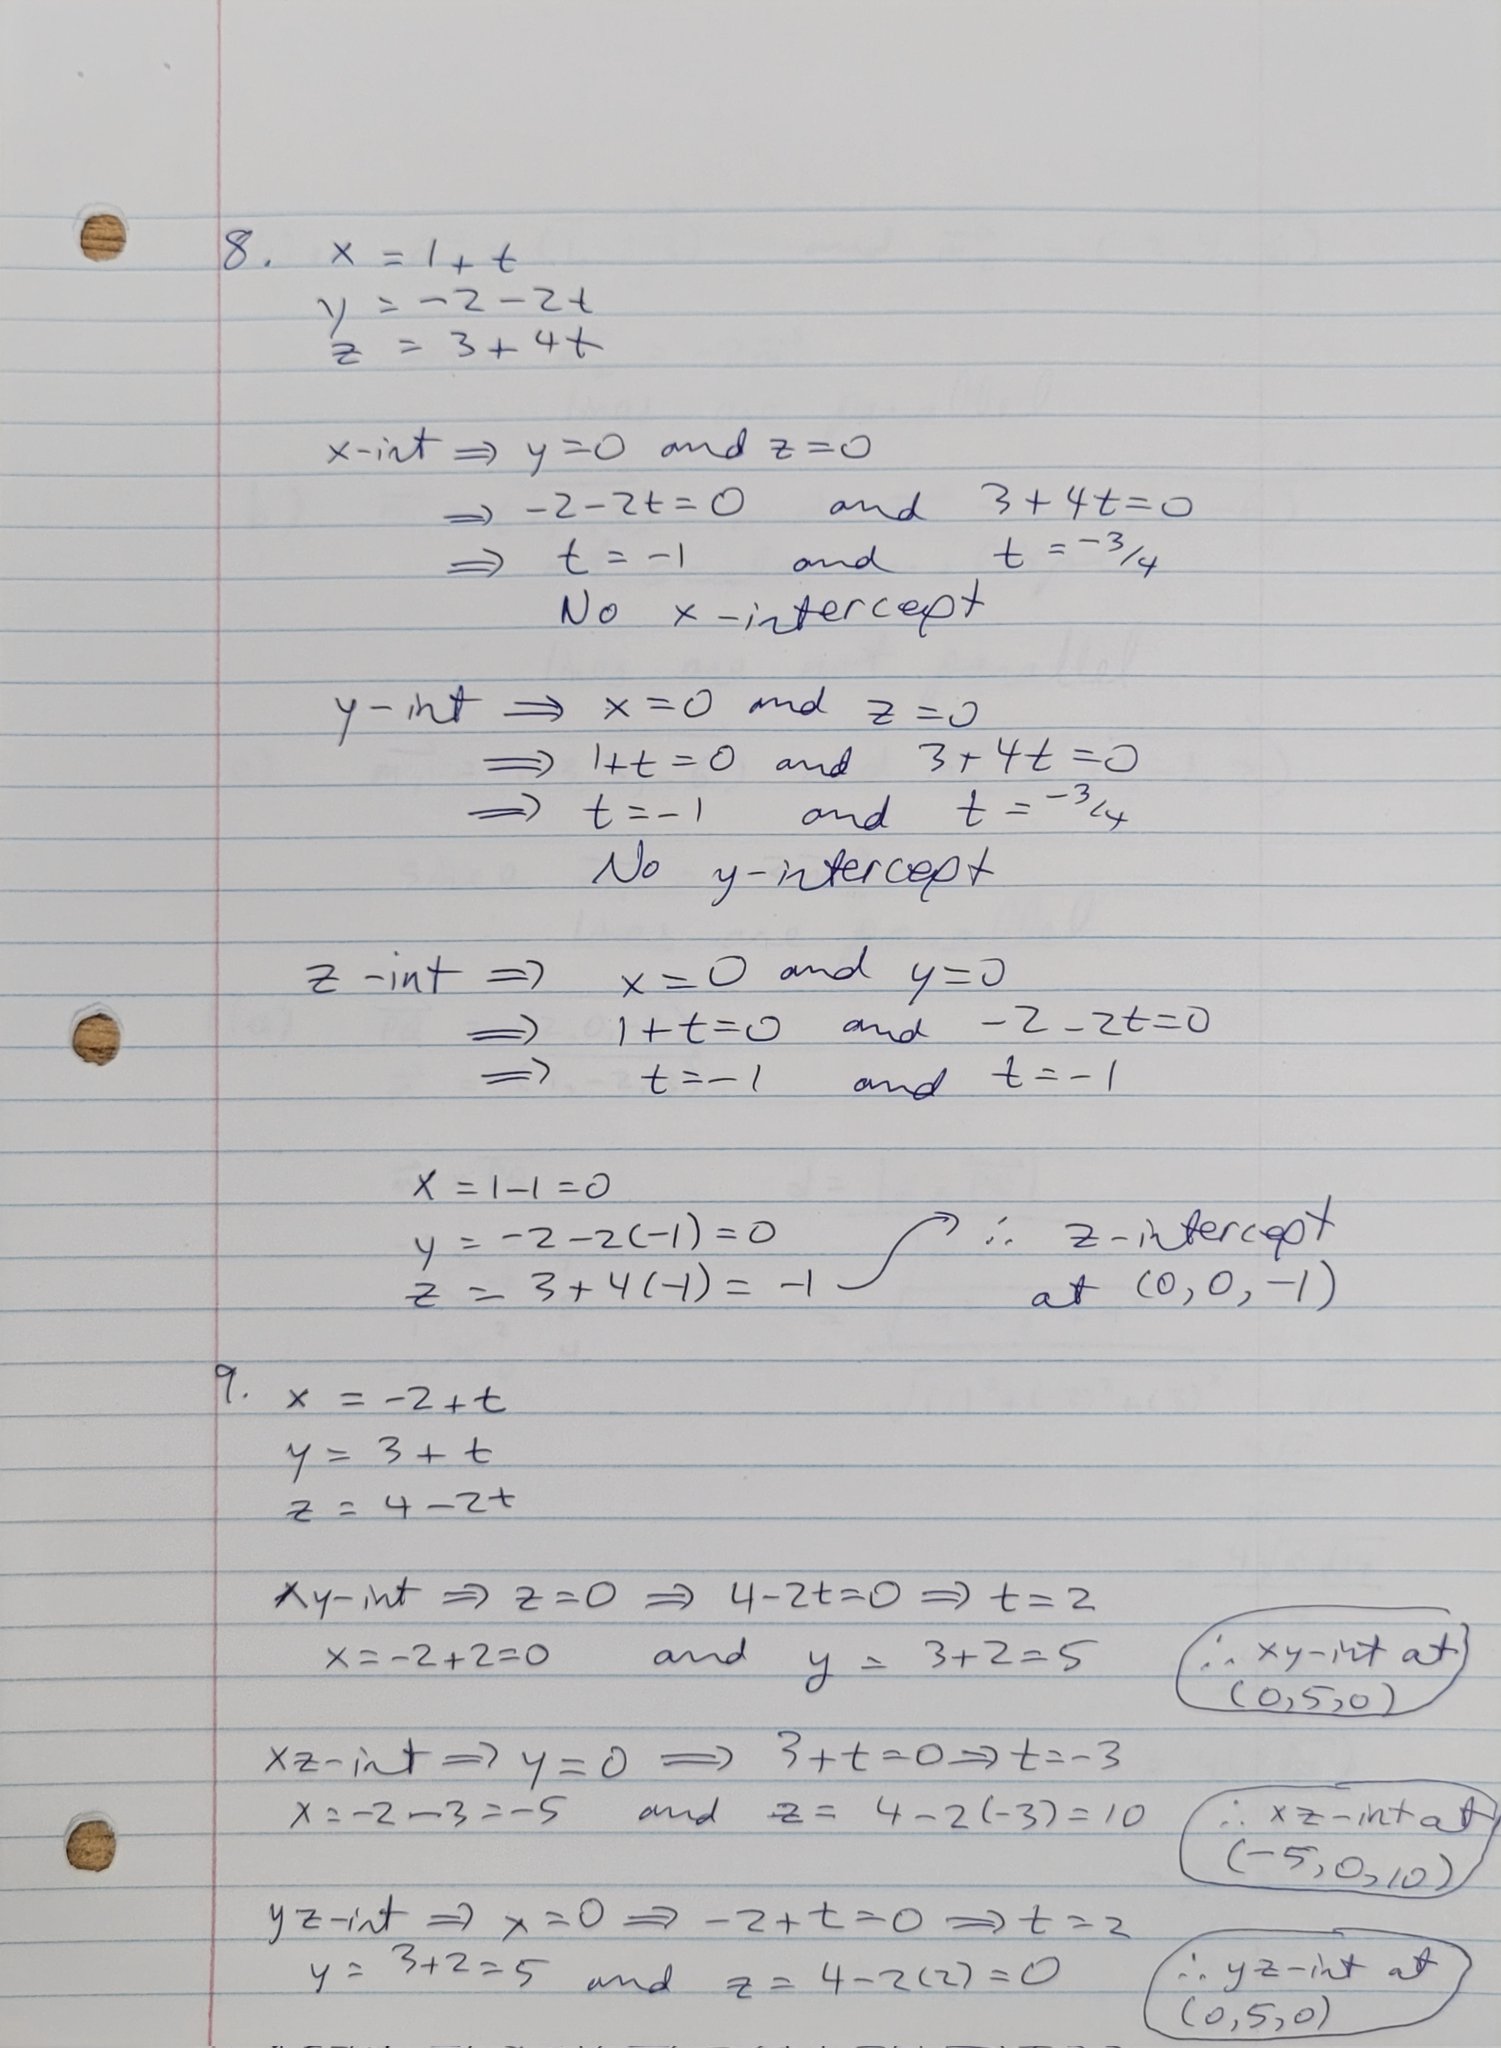 8. x = 1 + t
y = -2 - 2t
z = 3 + 4t
x-int ⇒ y=0 and z=0
⇒ -2-2t=0 and 3+4t=0
⇒ t = -1 and t = -3/4
No x-intercept
y-int ⇒ x=0 and z=0
⇒ 1+t=0 and 3+4t=0
⇒ t=-1 and t=-3/4
No y-intercept
z-int ⇒ x=0 and y=0
⇒ 1+t=0 and -2-2t=0
⇒ t=-1 and t=-1
x = 1-1 = 0
y = -2-2(-1) = 0 ∴ z-intercept
z = 3+4(-1) = -1 at (0,0,-1)
9. x = -2+t
y = 3+t
z = 4-2t
xy-int ⇒ z=0 ⇒ 4-2t=0 ⇒ t=2
x=-2+2=0 and y = 3+2=5 ∴ xy-int at
(0,5,0)
xz-int ⇒ y=0 ⇒ 3+t=0 ⇒ t=-3
x=-2-3=-5 and z = 4-2(-3)=10 ∴ xz-int at
(-5,0,10)
yz-int ⇒ x=0 ⇒ -2+t=0 ⇒ t=2
y = 3+2=5 and z = 4-2(2)=0 ∴ yz-int at
(0,5,0)